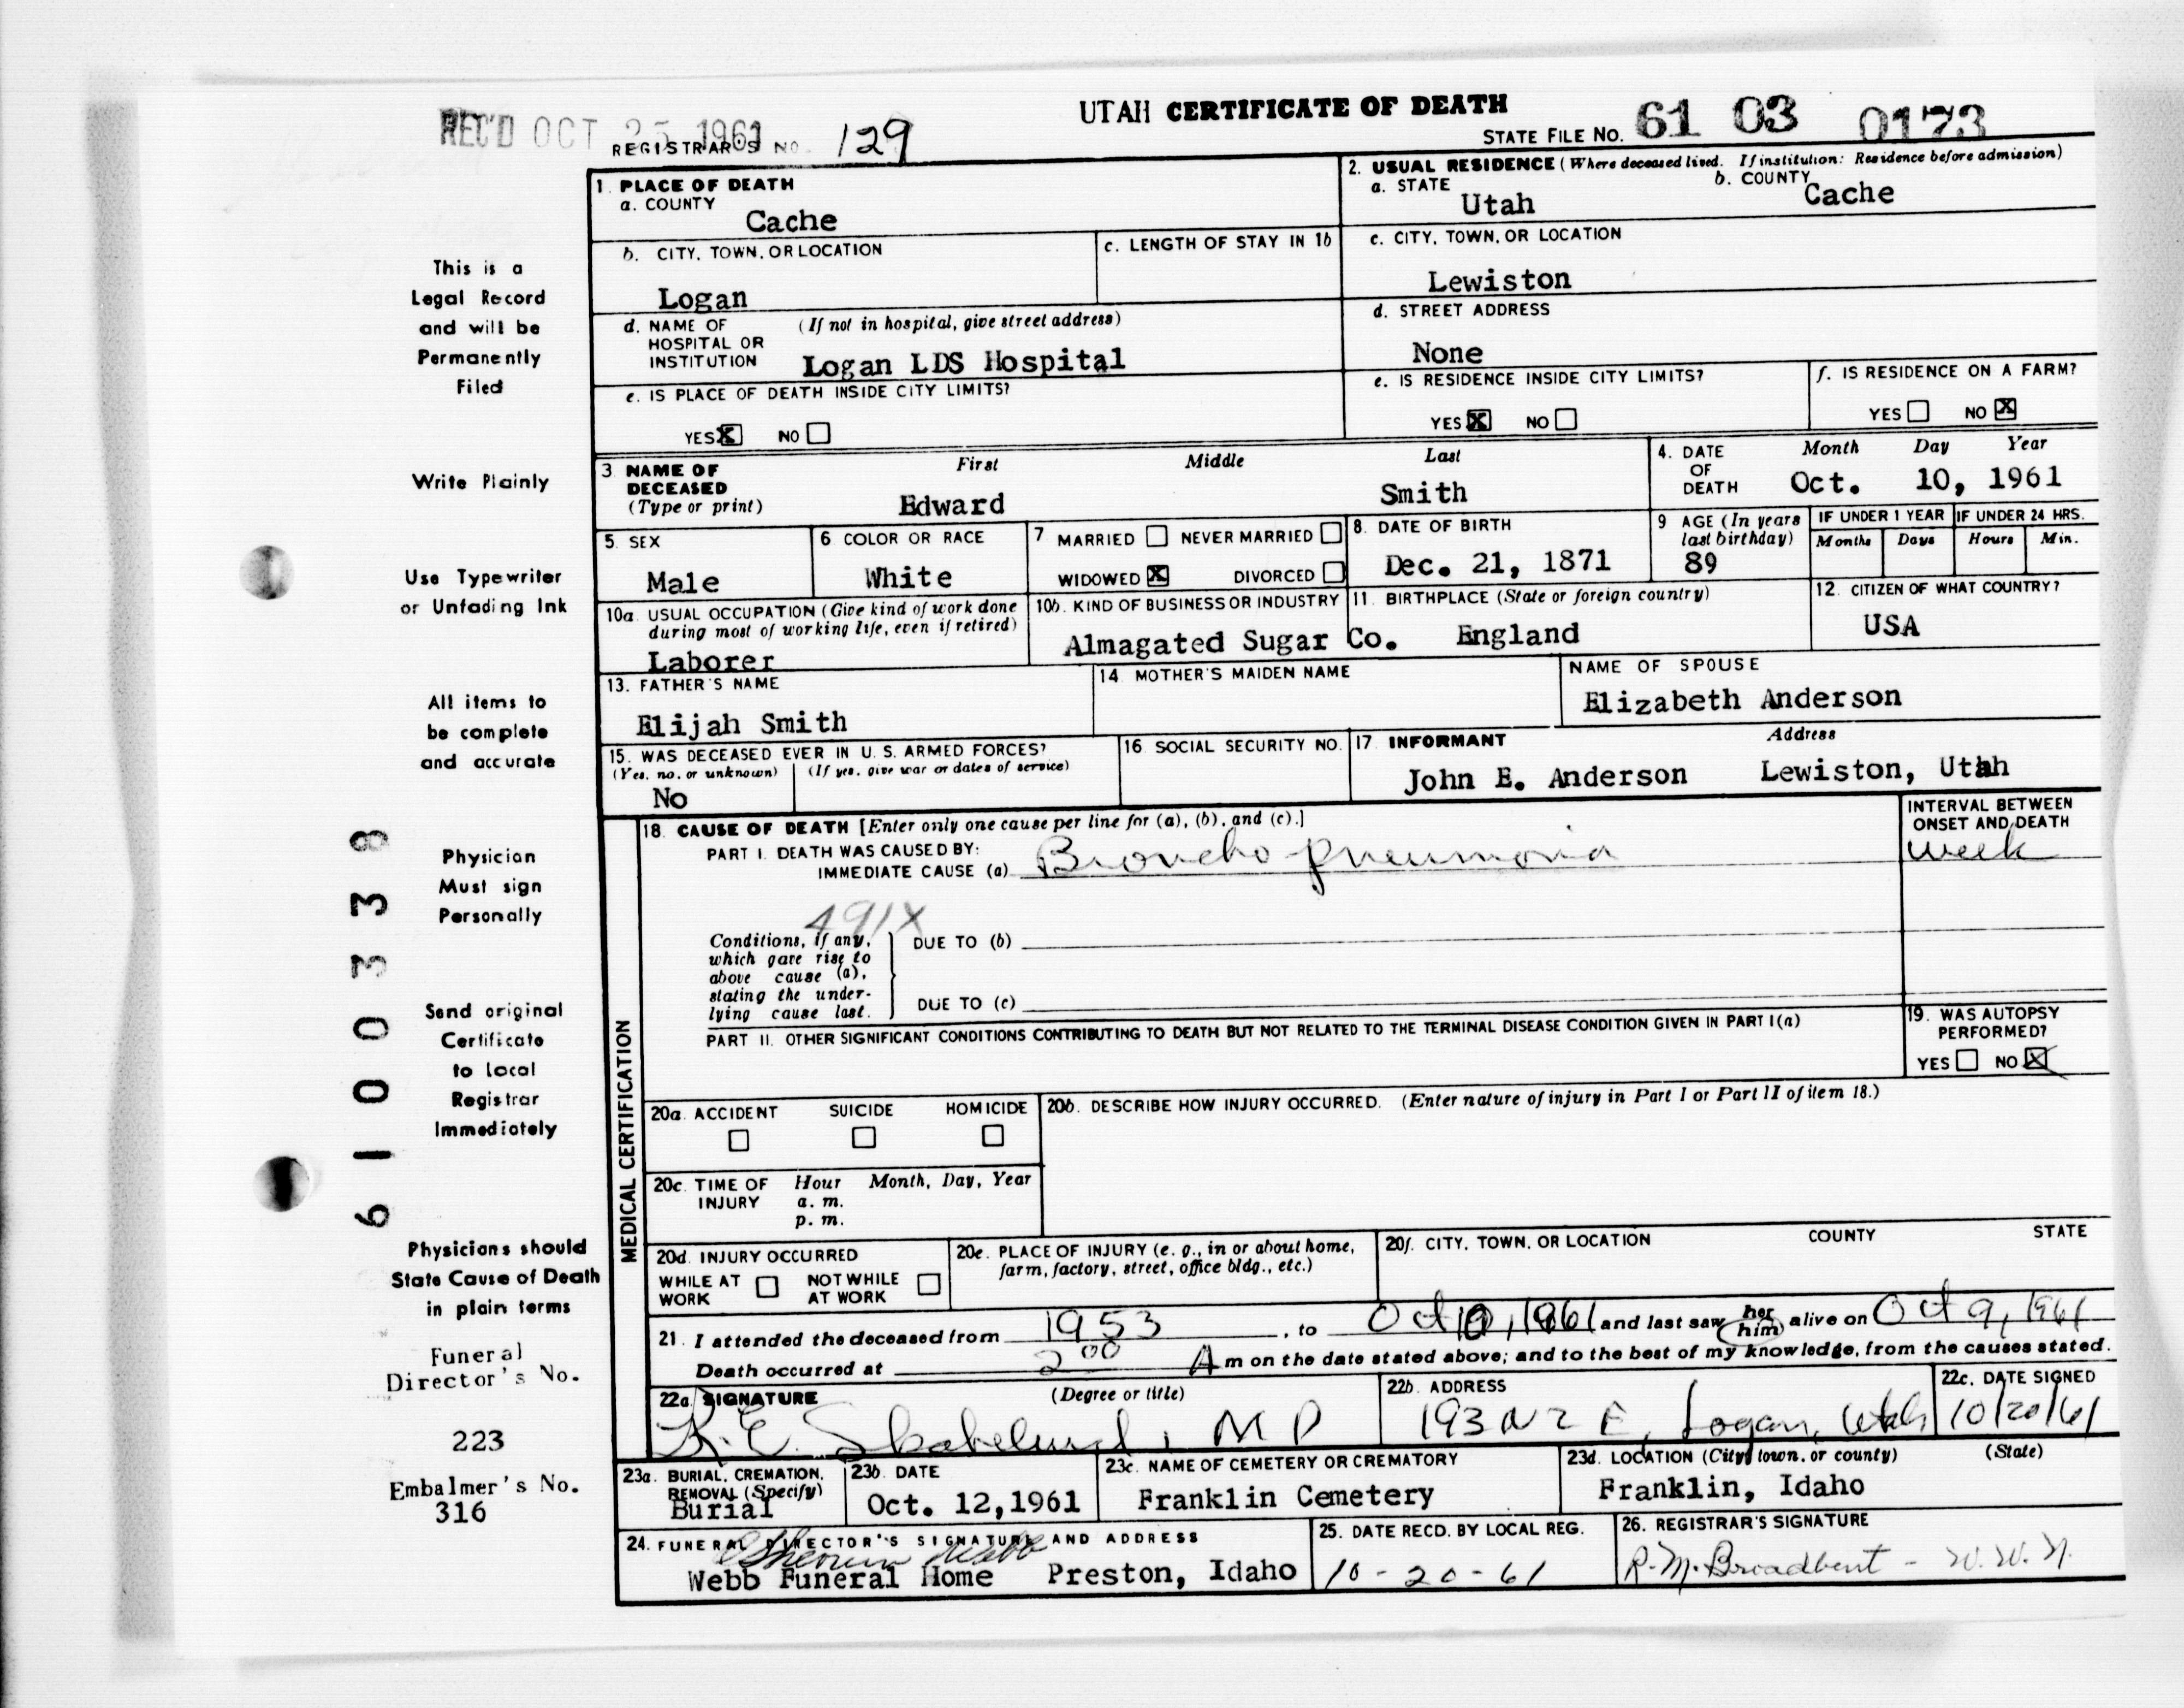 UTAH CERTIFICATE OF DEATH
REC'D OCT 25 1961
REGISTRAR'S NO. 129
STATE FILE NO. 61 03 0173
1. PLACE OF DEATH
a. COUNTY
Cache
2. USUAL RESIDENCE (Where deceased lived. If institution: Residence before admission)
a. STATE
Utah
b. COUNTY
Cache
b. CITY, TOWN, OR LOCATION
Logan
c. LENGTH OF STAY IN 1b
c. CITY, TOWN, OR LOCATION
Lewiston
d. NAME OF HOSPITAL OR INSTITUTION
(If not in hospital, give street address)
Logan LDS Hospital
d. STREET ADDRESS
None
e. IS PLACE OF DEATH INSIDE CITY LIMITS?
YES X NO
e. IS RESIDENCE INSIDE CITY LIMITS?
YES X NO
f. IS RESIDENCE ON A FARM?
YES NO X
3. NAME OF DECEASED
(Type or print)
First Middle Last
Edward Smith
4. DATE OF DEATH
Month Day Year
Oct. 10, 1961
5. SEX
Male
6. COLOR OR RACE
White
7. MARRIED NEVER MARRIED
WIDOWED X DIVORCED
8. DATE OF BIRTH
Dec. 21, 1871
9. AGE (In years last birthday)
89
IF UNDER 1 YEAR
Months Days
IF UNDER 24 HRS.
Hours Min.
10a. USUAL OCCUPATION (Give kind of work done during most of working life, even if retired)
Laborer
10b. KIND OF BUSINESS OR INDUSTRY
Almagated Sugar Co.
11. BIRTHPLACE (State or foreign country)
England
12. CITIZEN OF WHAT COUNTRY?
USA
13. FATHER'S NAME
Elijah Smith
14. MOTHER'S MAIDEN NAME
NAME OF SPOUSE
Elizabeth Anderson
15. WAS DECEASED EVER IN U. S. ARMED FORCES?
(Yes, no, or unknown) (If yes, give war or dates of service)
No
16. SOCIAL SECURITY NO.
17. INFORMANT Address
John E. Anderson Lewiston, Utah
MEDICAL CERTIFICATION
18. CAUSE OF DEATH [Enter only one cause per line for (a), (b), and (c).]
PART I. DEATH WAS CAUSED BY:
IMMEDIATE CAUSE (a) Broncho pneumonia
INTERVAL BETWEEN ONSET AND DEATH
week
491X
Conditions, if any, which gave rise to above cause (a), stating the underlying cause last.
DUE TO (b)
DUE TO (c)
PART II. OTHER SIGNIFICANT CONDITIONS CONTRIBUTING TO DEATH BUT NOT RELATED TO THE TERMINAL DISEASE CONDITION GIVEN IN PART I(a)
19. WAS AUTOPSY PERFORMED?
YES NO X
20a. ACCIDENT SUICIDE HOMICIDE
20b. DESCRIBE HOW INJURY OCCURRED. (Enter nature of injury in Part I or Part II of item 18.)
20c. TIME OF INJURY
Hour Month, Day, Year
a. m.
p. m.
20d. INJURY OCCURRED
WHILE AT WORK NOT WHILE AT WORK
20e. PLACE OF INJURY (e. g., in or about home, farm, factory, street, office bldg., etc.)
20f. CITY, TOWN, OR LOCATION COUNTY STATE
21. I attended the deceased from 1953, to Oct 10, 1961 and last saw her him alive on Oct 9, 1961
Death occurred at 2 00 A m on the date stated above; and to the best of my knowledge, from the causes stated.
22a. SIGNATURE (Degree or title)
Skabelund, MD
22b. ADDRESS
193 N 2 E, Logan, Utah
22c. DATE SIGNED
10/20/61
23a. BURIAL, CREMATION, REMOVAL (Specify)
Burial
23b. DATE
Oct. 12, 1961
23c. NAME OF CEMETERY OR CREMATORY
Franklin Cemetery
23d. LOCATION (City, town, or county) (State)
Franklin, Idaho
24. FUNERAL DIRECTOR'S SIGNATURE AND ADDRESS
Webb Funeral Home Preston, Idaho
25. DATE RECD. BY LOCAL REG.
10-20-61
26. REGISTRAR'S SIGNATURE
R. M. Broadbent - W. W. N.
This is a
Legal Record
and will be
Permanently
Filed
Write Plainly
Use Typewriter
or Unfading Ink
All items to
be complete
and accurate
Physician
Must sign
Personally
Send original
Certificate
to Local
Registrar
Immediately
Physicians should
State Cause of Death
in plain terms
Funeral
Director's No.
223
Embalmer's No.
316
6100338